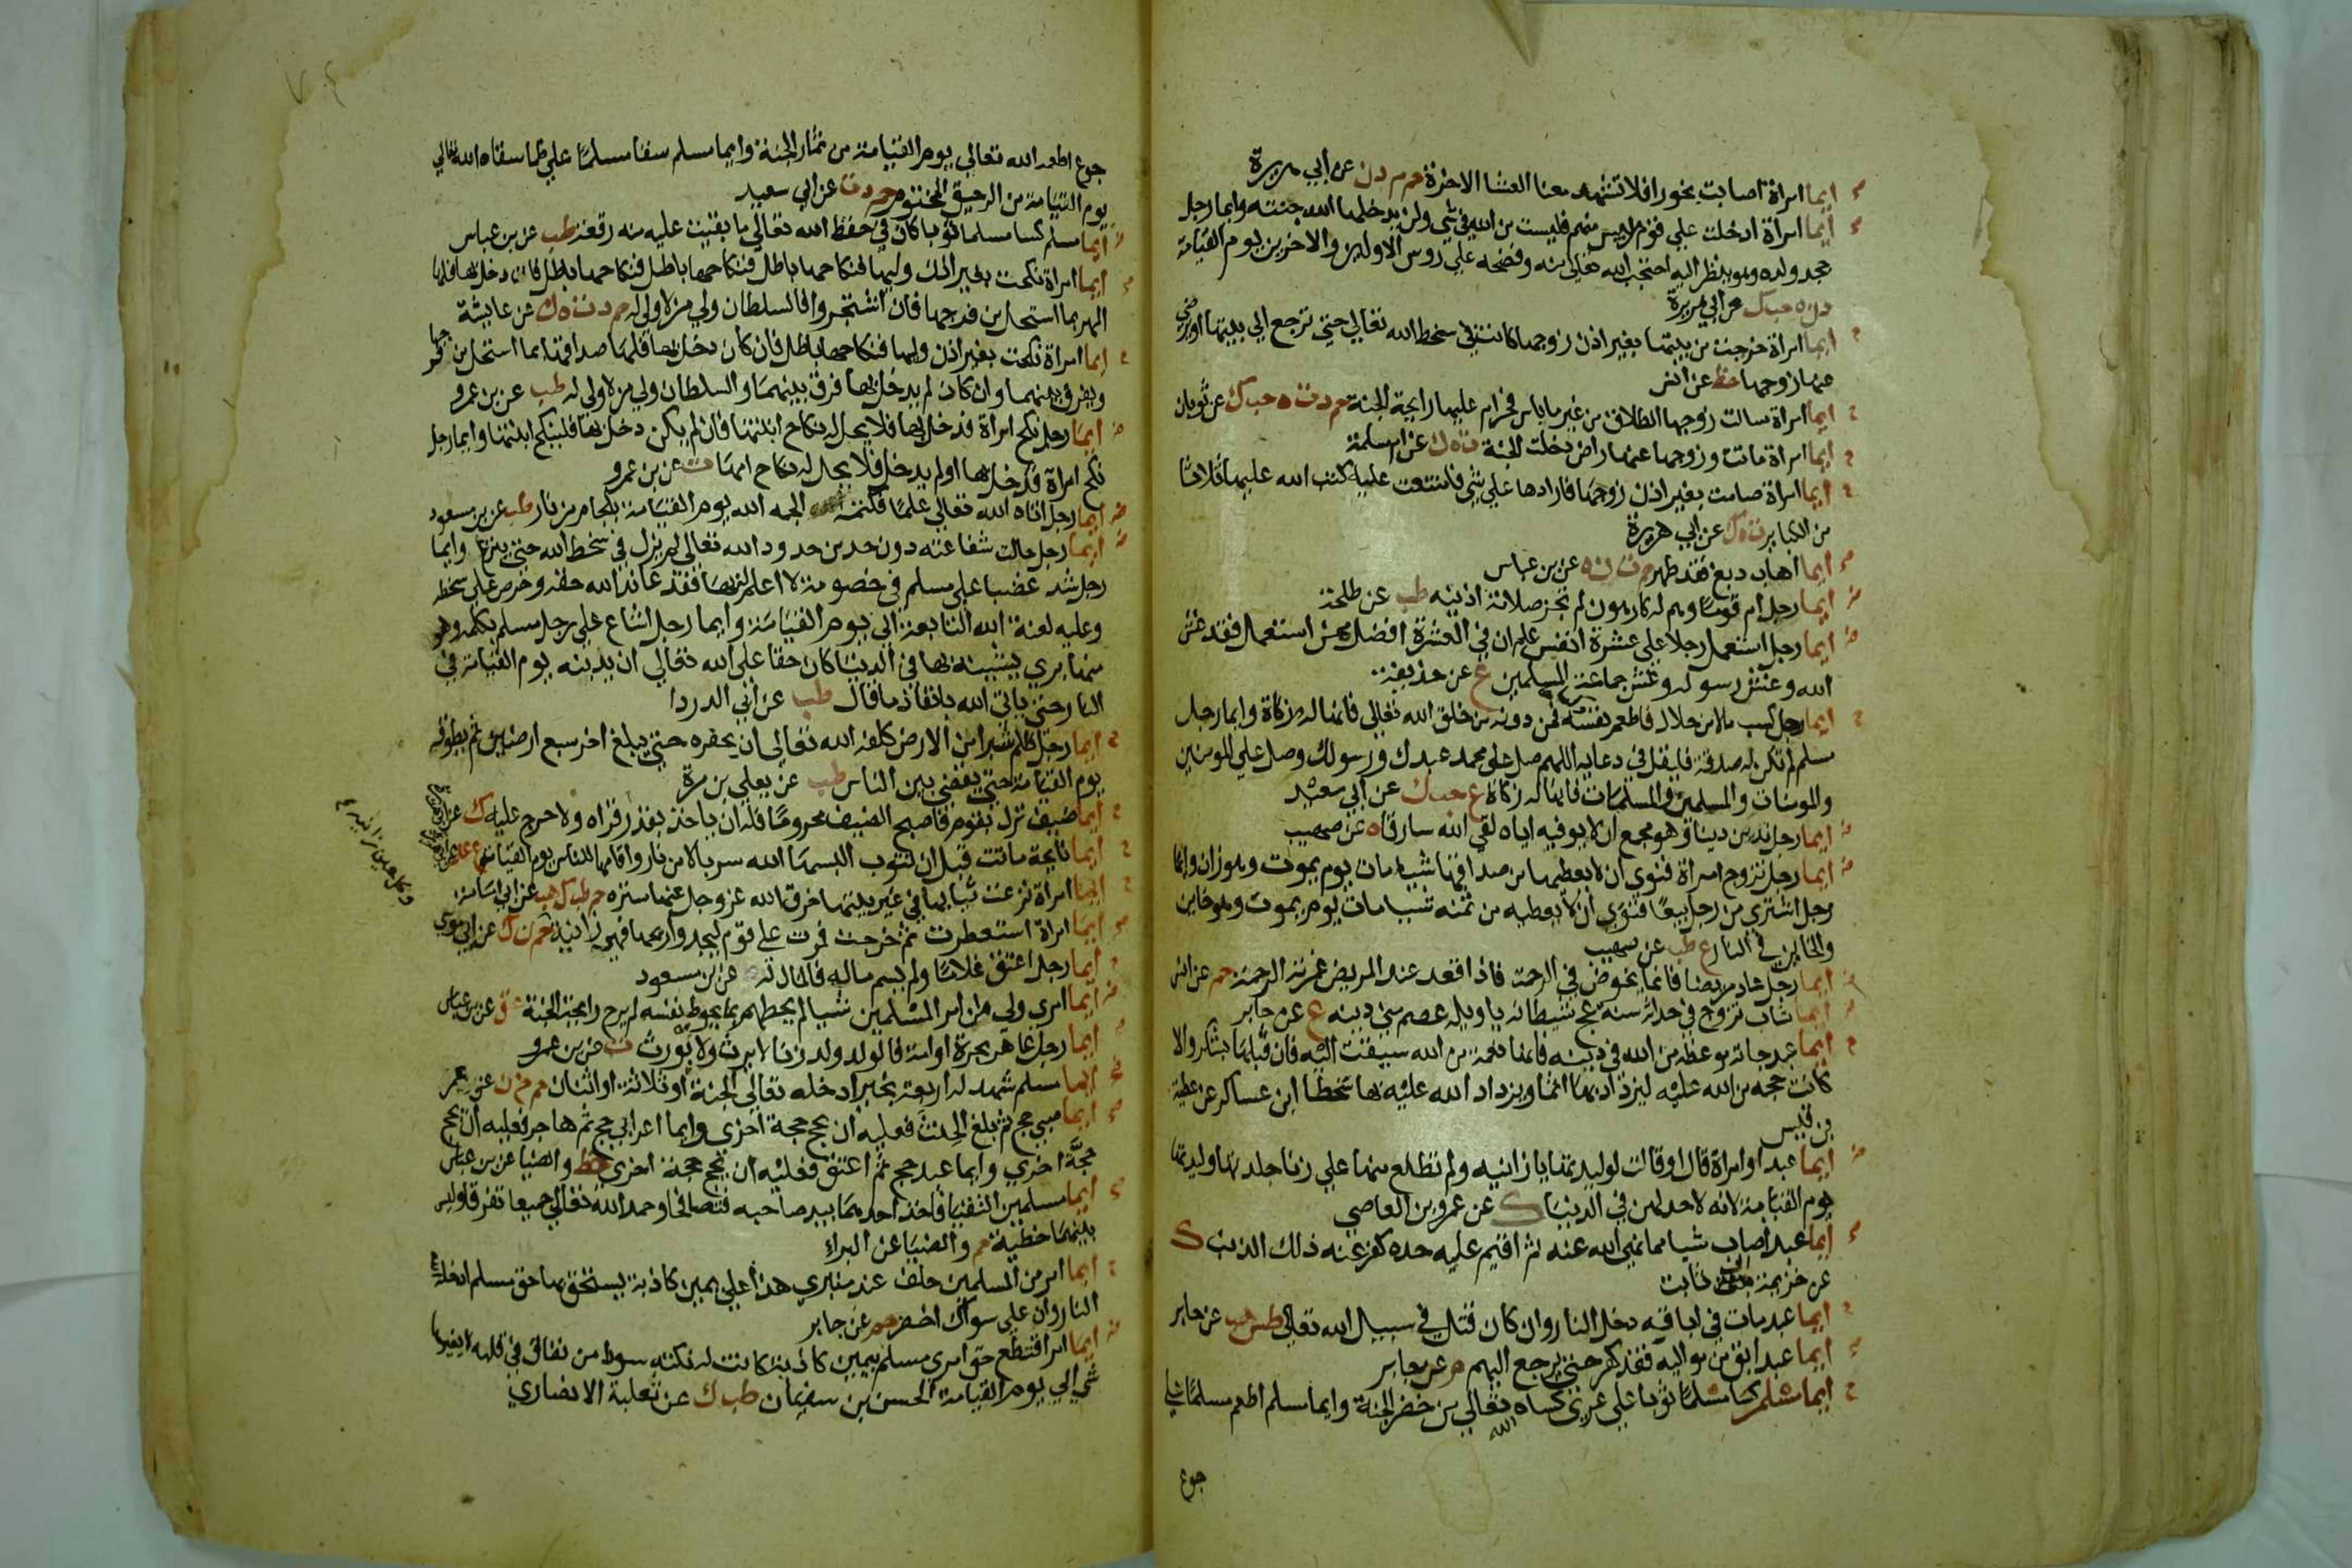 ايما امراة اصابت بخورا فلا تشهد معنا العشا الاخرة حم م د ن عن أبي هريرة
أيما امراة ادخلت على قوم من ليس منهم فليست من الله في شي ولن يدخلها الله جنته وايما رجل
جحد ولده وهو ينظر اليه احتجب الله تعالى منه وفضحه على روس الاولين والاخرين يوم القيامة
د ن ه حب ك عن ابي هريرة
ايما امراة خرجت من بيتها بغير اذن زوجها كانت في سخط الله تعالي حتي ترجع الي بيتها او يرضى
عنها زوجها خط عن انس
ايما امراة سالت زوجها الطلاق من غير ما باس فحرام عليها رايحة الجنة حم د ت ه حب ك عن ثوبان
ايما امراة ماتت وزوجها عنها راض دخلت الجنة ت ه ك عن ام سلمة
ايما امراة صامت بغير اذن زوجها فارادها علي شي فامتنعت عليه كتب الله عليها ثلاثا
من الكباير عن ابي هريرة
ايما اهاب دبغ فقد طهر حم ت ن ه عن بن عباس
ايما رجل ام قوما وهم له كارهون لم تجز صلاته اذنيه طب عن طلحة
ايما رجل استعمل رجلا علي عشرة انفس علم ان في العشرة افضل ممن استعمل فقد غش
الله وغش رسوله وغش جماعة المسلمين ع عن حذيفة
ايما رجل كسب مالا من حلال فاطعم نفسه فمن دونه من خلق الله تعالي فانها له زكاة وايما رجل
مسلم لم تكن له صدقة فليقل في دعايه اللهم صل على محمد عبدك ورسولك وصل علي المومنين
والمومنات والمسلمين والمسلمات فانها له زكاة ع حب ك عن ابي سعيد
ايما رجل تدين دينا وهو مجمع ان لا يوفيه اياه لقي الله سارقا ه عن صهيب
ايما رجل تزوج امراة فنوي ان لا يعطيها من صداقها شيا مات يوم يموت وهو زان وايما
رجل اشتري من رجل بيعا فنوي ان لا يعطيه من ثمنه شيا مات يوم يموت وهو خاين
والخاين في النار ع طب عن صهيب
ايما رجل عاد مريضا فانما يخوض في الرحمة فاذا قعد عند المريض غمرته الرحمة حم عن انس
ايما شاب تزوج في حداثة سنه عج شيطانه يا ويله عصم مني دينه ع عن جابر
ايما عبد جاته موعظة من الله في دينه فانها نعمة من الله سيقت اليه فان قبلها بشكر والا
كانت حجه من الله عليه ليزداد بها اثما ويزداد الله عليه بها سخطا ابن عساكر عن عطية
بن قيس
ايما عبد او امراة قال او قالت لوليدتها يا زانيه ولم تطلع منها علي زنا جلدتها وليدتها
يوم القيامة لانه لا حد لهن في الدنيا ك عن عمرو بن العاصي
ايما عبد اصاب شيا مما نهي الله عنه ثم اقيم عليه حده كفر عنه ذلك الذنب ك
عن خزيمة بن ثابت
ايما عبد مات في اباقه دخل النار وان كان قتل في سبيل الله تعالي طس هب عن جابر
ايما عبد ابق من مواليه فقد كفر حتي يرجع اليهم م عن جابر
ايما مسلم كسا مسلما ثوبا علي عري كساه الله تعالي من خضر الجنة وايما مسلم اطعم مسلما على
جوع
جوع اطعمه الله تعالي يوم القيامة من ثمار الجنة وايما مسلم سقا مسلما علي ظما سقاه الله تعالي
يوم القيامة من الرحيق المختوم حم د ت عن ابي سعيد
ايما مسلم كسا مسلما ثوبا كان في حفظ الله تعالي ما بقيت عليه منه رقعة طب عن بن عباس
ايما امراة نكحت بغير اذن وليها فنكاحها باطل فنكاحها باطل فنكاحها باطل فان دخل بها فلها
المهر بما استحل من فرجها فان اشتجروا فالسلطان ولي من لا ولي له حم د ت ه ك عن عايشة
ايما امراة نكحت بغير اذن وليها فنكاحها باطل فان كان دخل بها فلها صداقها بما استحل من فرجها
ويفرق بينهما وان كان لم يدخل بها فرق بينهما والسلطان ولي من لا ولي له طب عن بن عمرو
ايما رجل نكح امراة فدخل بها فلا يحل له نكاح ابنتها فان لم يكن دخل بها فلينكح ابنتها وايما رجل
نكح امراة فدخل بها او لم يدخل فلا يحل له نكاح امها ت عن بن عمرو
ايما رجل اتاه الله تعالي علما فكتمه الجمه الله يوم القيامة بلجام من نار طب عن بن مسعود
ايما رجل حالت شفاعته دون حد من حدود الله تعالي لم يزل في سخط الله حتي ينزع وايما
رجل شد غضبا علي مسلم في خصومة لا علم له بها فقد عاند الله حقه وحرص علي سخطه
وعليه لعنة الله التابعة الي يوم القيامة وايما رجل اشاع علي رجل مسلم بكلمة وهو
منها بري يشينه بها في الدنيا كان حقا علي الله تعالي ان يدينه يوم القيامة في
النار حتي ياتي الله بانفاذ ما قال طب عن ابي الدردا
ايما رجل ظلم شبرا من الارض كلفه الله تعالي ان يحفره حتي يبلغ اخر سبع ارضين ثم يطوقه
يوم القيامة حتي يقضي بين الناس طب عن يعلي بن مرة
ايما ضيف نزل بقوم فاصبح الضيف محروما فله ان ياخذ بقدر قراه ولا حرج عليه ك عن ابي هريرة
ايما نايحة ماتت قبل ان تتوب البسها الله سربالا من نار واقامها للناس يوم القيامة ع عد عن ابي هريرة
ايما امراة نزعت ثيابها في غير بيتها خرق الله عز وجل عنها ستره حم طب ك هب عن ابي امامة
ايما امراة استعطرت ثم خرجت فمرت علي قوم ليجدوا ريحها فهي زانية حم ن ك عن ابي موسي
وكل عين زانية
ايما رجل اعتق غلاما ولم يسم ماله فالمال له ه عن بن مسعود
ايما امري ولي من امر المسلمين شيا لم يحطهم بما يحوط نفسه لم يرح رايحة الجنة عق عن بن عباس
ايما رجل عاهر بحرة او امة فالولد ولد زنا لا يرث ولا يورث ت عن بن عمرو
ايما مسلم شهد له اربعة بخير ادخله تعالي الجنة او ثلاثة او اثنان حم خ ن عن عمر
ايما صبي حج ثم بلغ الحنث فعليه ان يحج حجة اخري وايما اعرابي حج ثم هاجر فعليه ان يحج
حجة اخري وايما عبد حج ثم اعتق فعليه ان يحج حجة اخري خط والضيا عن بن عباس
ايما مسلمين التقيا فاخذ احدهما بيد صاحبه فتصافحا وحمدا الله تعالي جميعا تفرقا وليس
بينهما خطية حم والضيا عن البراء
ايما امر من المسلمين حلف عند منبري هذا علي يمين كاذبة يستحق بها حق مسلم ادخله الله
النار وان علي سواك اخضر حم عن جابر
ايما امر اقتطع حق امري مسلم بيمين كاذبة كانت له نكتة سودا من نفاق في قلبه لا يغيرها
شي الي يوم القيامة الحسن بن سفيان طب ك عن ثعلبة الانصاري